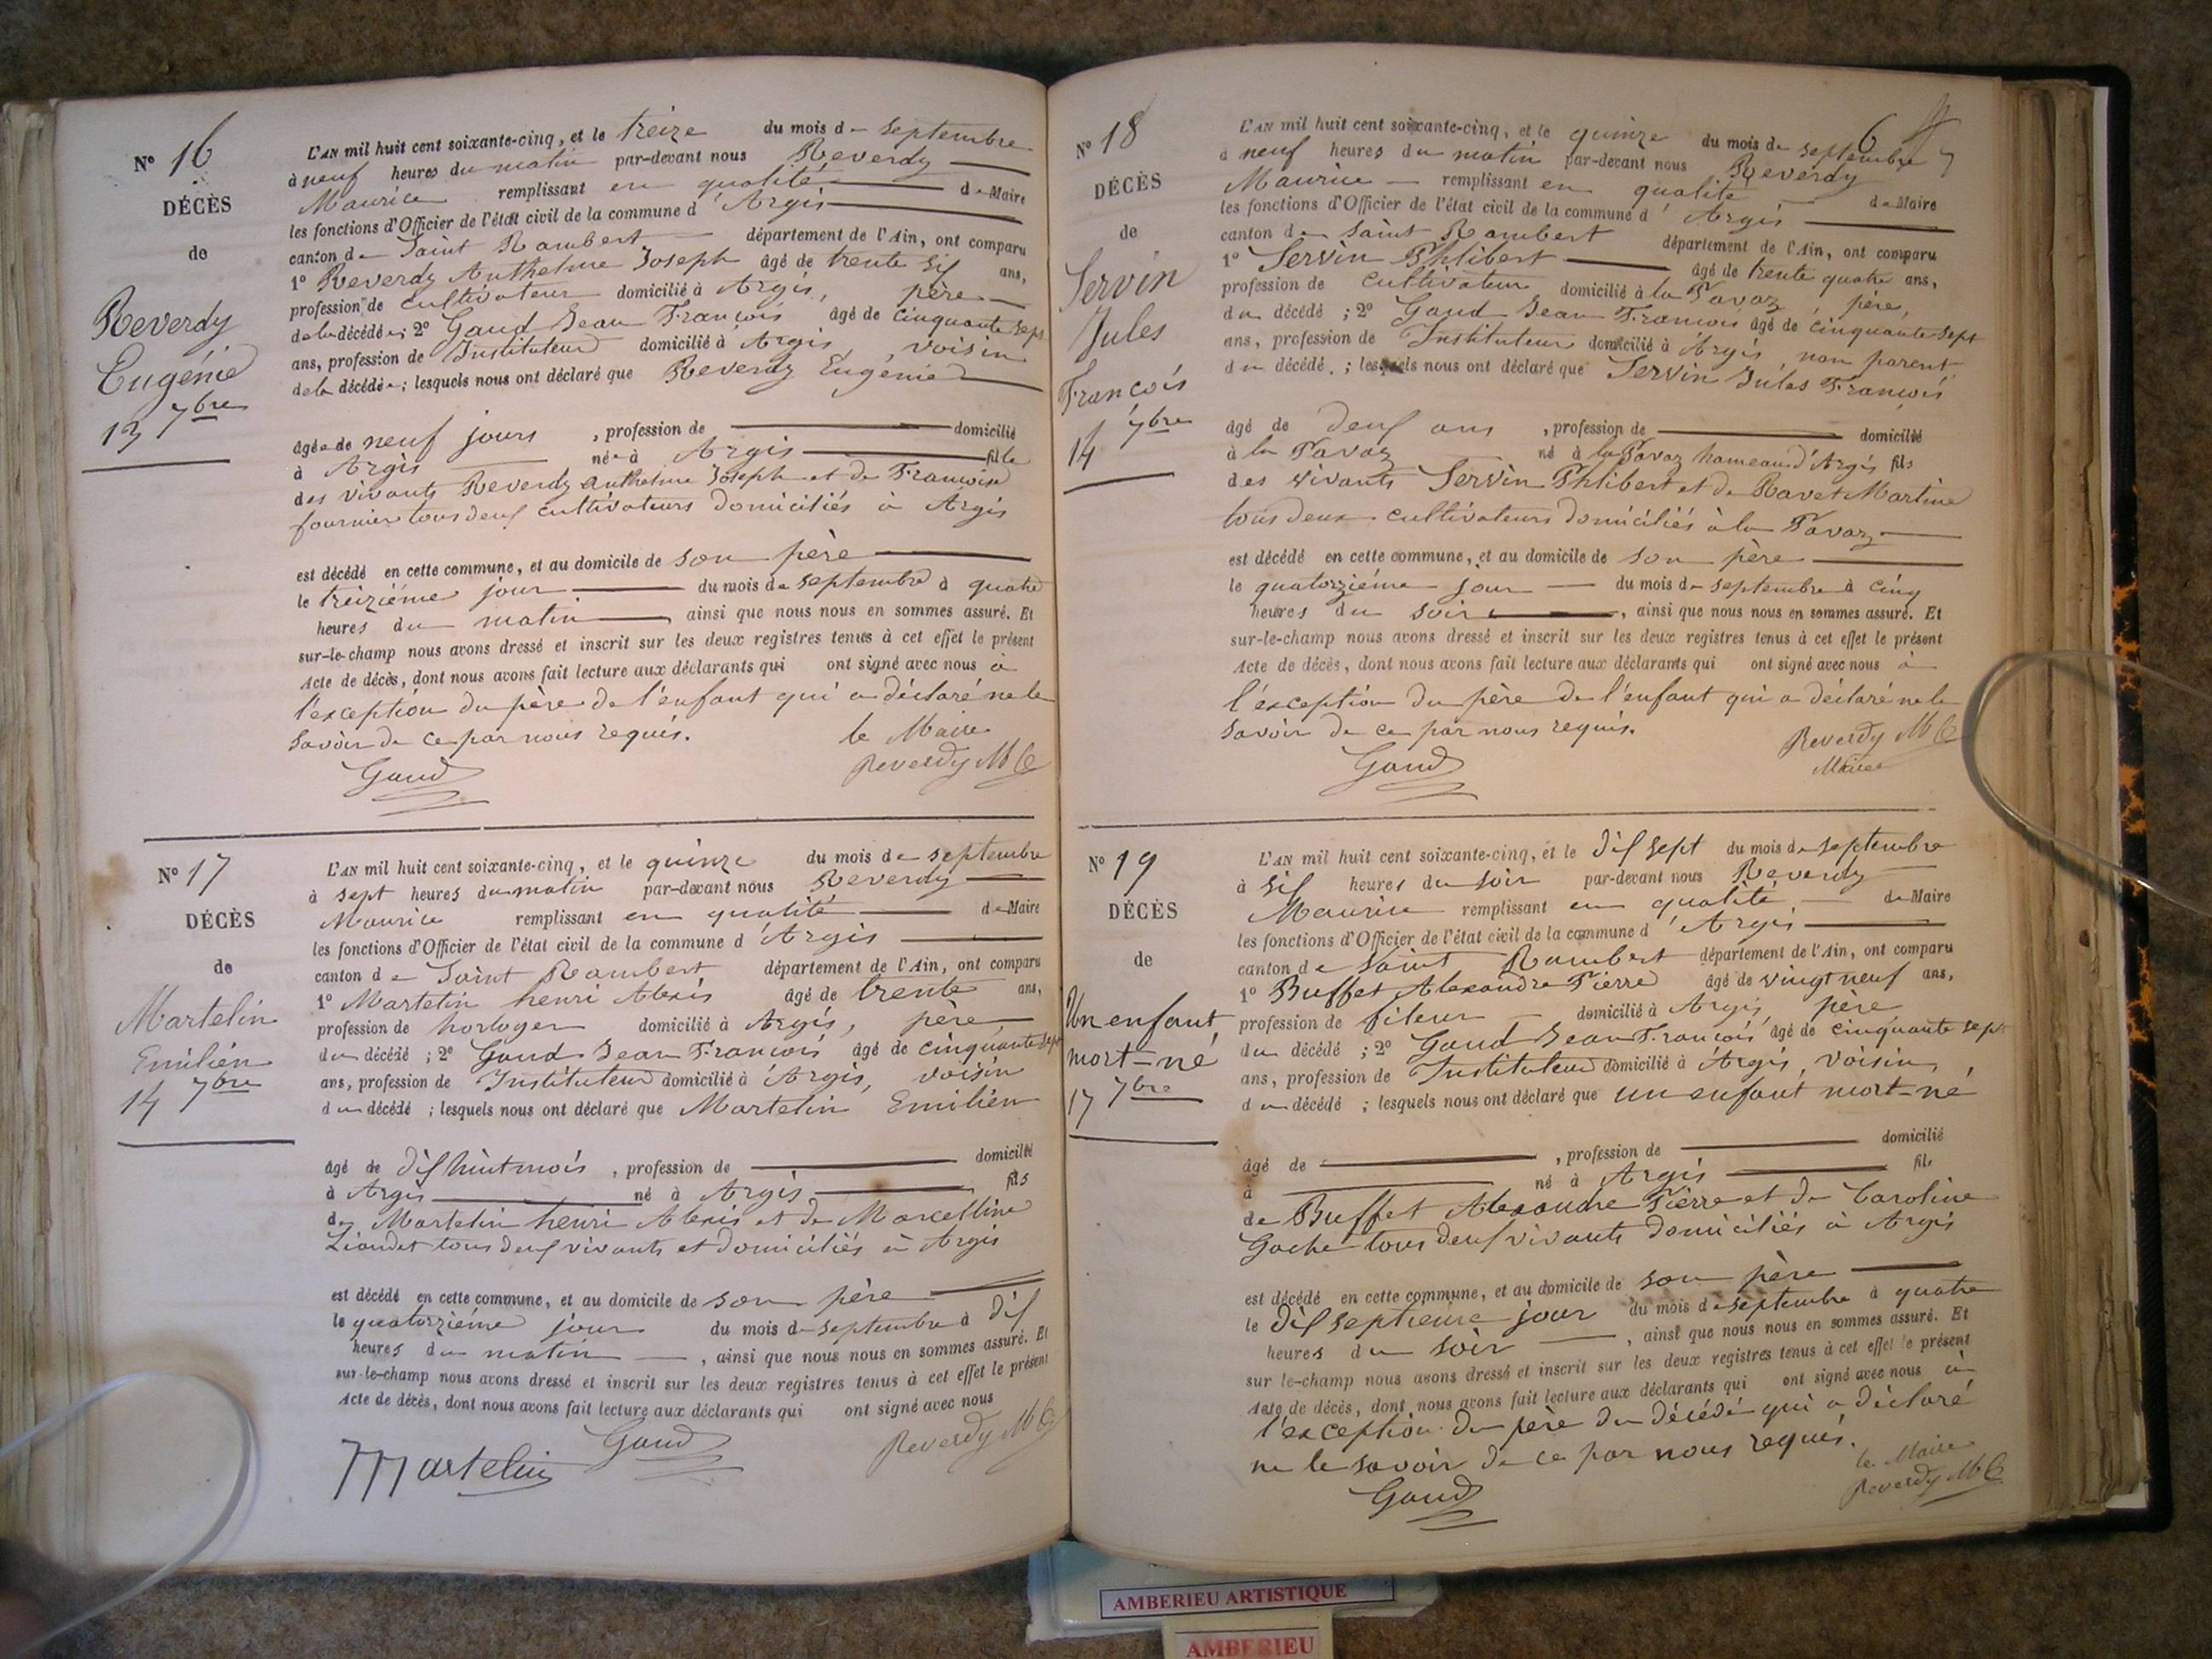 N° 16
DÉCÈS
de
Reverdy
Eugénie
13 7bre
L'AN mil huit cent soixante-cinq, et le treize du mois de septembre
à neuf heures du matin par-devant nous Reverdy
Maurice remplissant en qualité de Maire
les fonctions d'Officier de l'état civil de la commune d'Argis
canton de Saint Rambert département de l'Ain, ont comparu
1° Reverdy Anthelme Joseph âgé de trente six ans,
profession de cultivateur domicilié à Argis, père
de la décédée; 2° Gaud Jean François âgé de cinquante sept
ans, profession de Instituteur domicilié à Argis, voisin
de la décédée; lesquels nous ont déclaré que Reverdy Eugénie
âgée de neuf jours, profession de domicilié
à Argis née à Argis fille
des vivants Reverdy Anthelme Joseph et de Françoise
fournier tous deux cultivateurs domiciliés à Argis
est décédé en cette commune, et au domicile de son père
le treizième jour du mois de septembre à quatre
heures du matin, ainsi que nous nous en sommes assuré. Et
sur-le-champ nous avons dressé et inscrit sur les deux registres tenus à cet effet le présent
Acte de décès, dont nous avons fait lecture aux déclarants qui ont signé avec nous à
l'exception du père de l'enfant qui a déclaré ne le
savoir de ce par nous requis.
le Maire
Gaud Reverdy
N° 17
DÉCÈS
de
Martelin
Emilien
14 7bre
L'AN mil huit cent soixante-cinq, et le quinze du mois de septembre
à sept heures du matin par-devant nous Reverdy
Maurice remplissant en qualité de Maire
les fonctions d'Officier de l'état civil de la commune d'Argis
canton de Saint Rambert département de l'Ain, ont comparu
1° Martelin henri Alexis âgé de trente ans,
profession de horloger domicilié à Argis, père
du décédé; 2° Gaud Jean François âgé de cinquante sept
ans, profession de Instituteur domicilié à Argis, voisin
du décédé; lesquels nous ont déclaré que Martelin Emilien
âgé de dix huit mois, profession de domicilié
à Argis né à Argis fils
de Martelin henri Alexis et de Marcelline
Liandet tous deux vivants et domiciliés à Argis
est décédé en cette commune, et au domicile de son père
le quatorzième jour du mois de septembre à dix
heures du matin, ainsi que nous nous en sommes assuré. Et
sur-le-champ nous avons dressé et inscrit sur les deux registres tenus à cet effet le présent
Acte de décès, dont nous avons fait lecture aux déclarants qui ont signé avec nous
Martelin Gaud Reverdy
6
N° 18
DÉCÈS
de
Servin
Jules
François
14 7bre
L'AN mil huit cent soixante-cinq, et le quinze du mois de septembre
à neuf heures du matin par-devant nous Reverdy
Maurice remplissant en qualité de Maire
les fonctions d'Officier de l'état civil de la commune d'Argis
canton de Saint Rambert département de l'Ain, ont comparu
1° Servin Phlibert âgé de trente quatre ans,
profession de cultivateur domicilié à la Pavaz, père
du décédé; 2° Gaud Jean François âgé de cinquante sept
ans, profession de Instituteur domicilié à Argis non parent
du décédé; lesquels nous ont déclaré que Servin Jules François
âgé de deux ans, profession de domicilié
à la Pavaz né à la Pavaz hameau d'Argis fils
des vivants Servin Phlibert et de Ravet Martine
tous deux cultivateurs domiciliés à la Pavaz
est décédé en cette commune, et au domicile de son père
le quatorzième jour du mois de septembre à cinq
heures du soir, ainsi que nous nous en sommes assuré. Et
sur-le-champ nous avons dressé et inscrit sur les deux registres tenus à cet effet le présent
Acte de décès, dont nous avons fait lecture aux déclarants qui ont signé avec nous à
l'exception du père de l'enfant qui a déclaré ne le
savoir de ce par nous requis.
Gaud Reverdy
Maire
N° 19
DÉCÈS
de
Un enfant
mort-né
17 7bre
L'AN mil huit cent soixante-cinq, et le dix sept du mois de septembre
à six heures du soir par-devant nous Reverdy
Maurice remplissant en qualité de Maire
les fonctions d'Officier de l'état civil de la commune d'Argis
canton de Saint Rambert département de l'Ain, ont comparu
1° Buffet Alexandre Pierre âgé de vingt neuf ans,
profession de fileur domicilié à Argis, père
du décédé; 2° Gaud Jean François âgé de cinquante sept
ans, profession de Instituteur domicilié à Argis, voisin
du décédé; lesquels nous ont déclaré que un enfant mort-né
âgé de, profession de domicilié
à né à Argis fils
de Buffet Alexandre Pierre et de Caroline
Gache tous deux vivants domiciliés à Argis
est décédé en cette commune, et au domicile de son père
le dix septieme jour du mois de septembre à quatre
heures du soir, ainsi que nous nous en sommes assuré. Et
sur le-champ nous avons dressé et inscrit sur les deux registres tenus à cet effet le présent
Acte de décès, dont nous avons fait lecture aux déclarants qui ont signé avec nous à
l'exception du père du décédé qui a déclaré
ne le savoir de ce par nous requis.
le Maire
Gaud Reverdy
AMBERIEU ARTISTIQUE
AMBERIEU